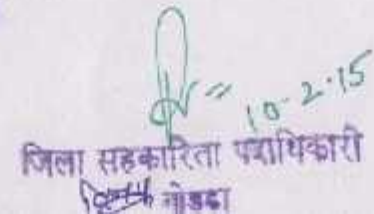 10-2-15
जिला सहकारिता पदाधिकारी
गोड्डा